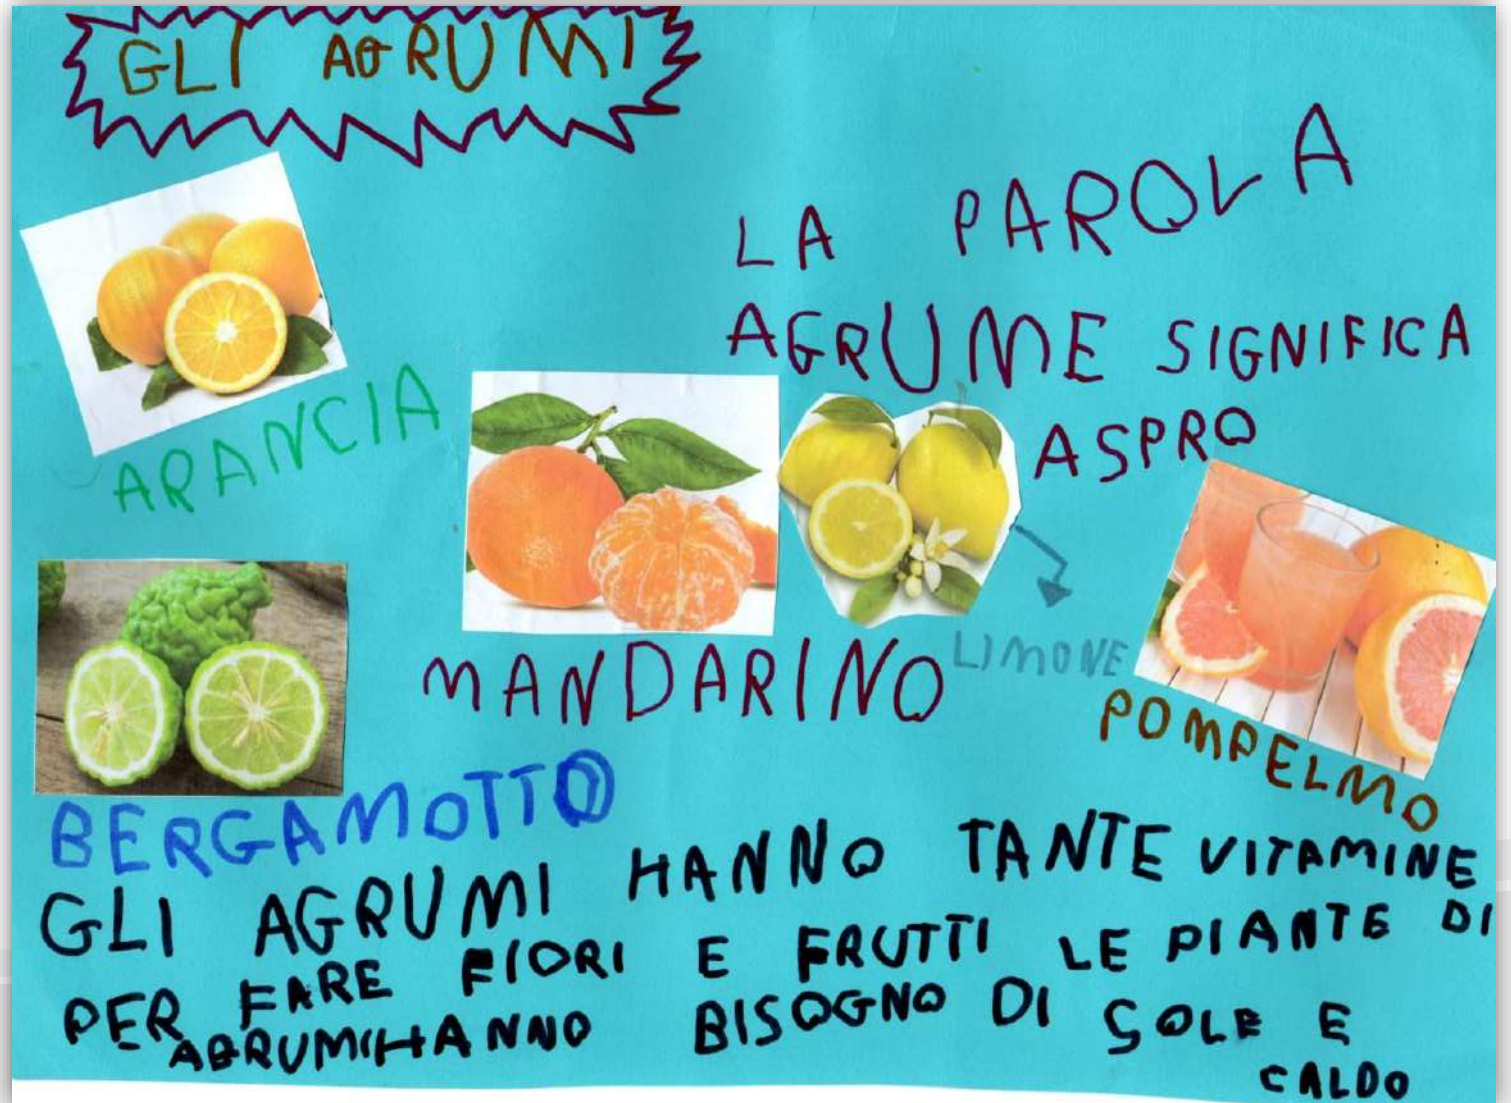 GLI AGRUMI
LA PAROLA
AGRUME SIGNIFICA
ASPRO
ARANCIA
MANDARINO
LIMONE
POMPELMO
BERGAMOTTO
GLI AGRUMI HANNO TANTE VITAMINE
PER FARE FIORI E FRUTTI LE PIANTE DI
AGRUMI HANNO BISOGNO DI SOLE E
CALDO